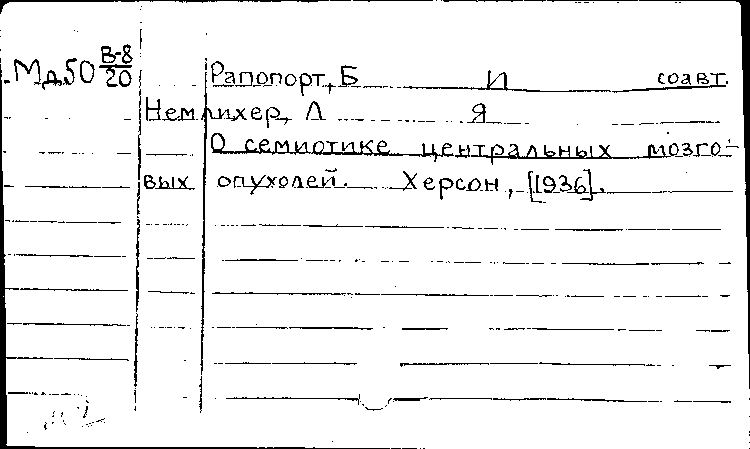 Мд50 В-8/20 Рапопорт, Б И соавт.
Немлихер, Л Я
О семиотике центральных мозго-
вых опухолей. Херсон, [1936].